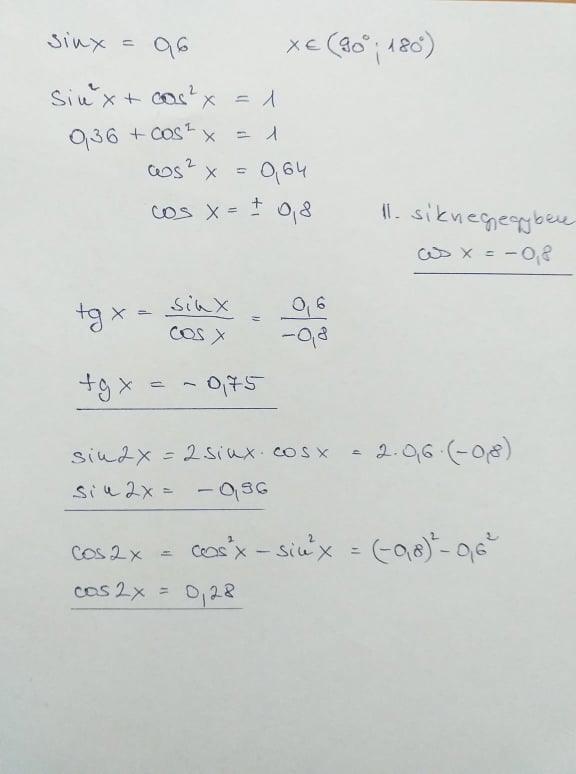 sinx = 0,6 x∈(90°;180°)
sin²x + cos²x = 1
0,36 + cos²x = 1
cos²x = 0,64
cos x = ± 0,8
II. síknegyedben
cos x = -0,8
tg x = sinx/cosx = 0,6/-0,8
tg x = - 0,75
sin2x = 2sinx·cosx = 2·0,6·(-0,8)
sin2x = -0,96
cos2x = cos²x - sin²x = (-0,8)² - 0,6²
cos2x = 0,28